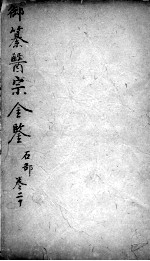 御纂醫宗金鑒
石部 卷二十